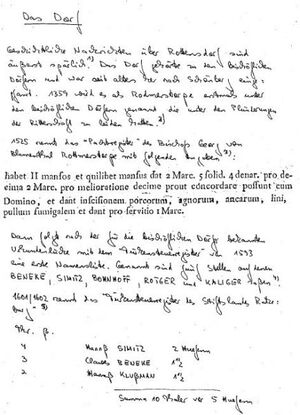 Das Dorf
Geschichtliche Nachrichten über Rottensdorf sind
äusserst spärlich. 1) Das Dorf gehörte zu den bischöflichen
Dörfern und war seit altes her nach Schönberg einge-
pfarrt. 1359 wird es als Rodmersberge erstmals unter
den bischöflichen Dörfern genannt die unter den Plünderungen
der Ritterschaft zu leiden hatten 2)
1525 nennt das "Pachtregister" des Bischofs Georg von
Blumenthal Rottmersberge mit folgenden Angaben 3):
habet II mansos et quilibet mansus dat 2 Marc. 5 solid. 4 denar. pro de-
cima 2 Marc. pro melioratione decime prout concordare possunt cum
Domino, et dant inscisionem porcorum, agnorum, ancarum, lini,
pullum fumigalem et dant pro servitio 1 Marc.
Dann folgt nach der für die bischöflichen Dörfer bekannten
Urkundenlücke mit dem "Türkensteuerregister" von 1593
eine erste Namensliste. Genannt sind fünf Stellen auf denen
BENEKE, SIMITZ, BONHOFF, RÖTGER und KALIGER saßen 4)
1601/1602 nennt das Türkensteuerregister des Stiftslandes Ratze-
burg 5)
Thr. β.
4 Hanß SIMITZ 2 Huefenn
3 Clawes BENEKE 1½
2 Hannß KLUßMAN 1½
Summa 10 Thaler ver 5 Huefenn